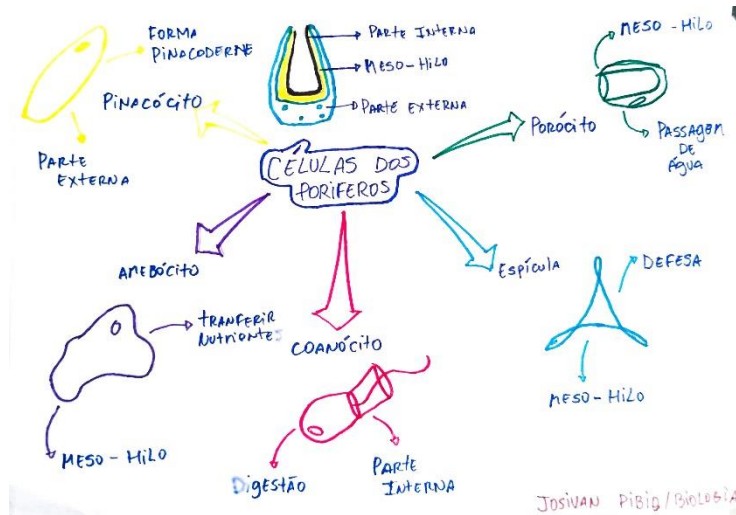 FORMA
PINACODERME
PINACÓCITO
PARTE
EXTERNA
PARTE INTERNA
MESO-HILO
PARTE EXTERNA
MESO-HILO
PORÓCITO
PASSAGEM
DE
ÁGUA
CÉLULAS DOS
PORIFEROS
AMEBÓCITO
TRANFERIR
NUTRIENTES
MESO-HILO
COANÓCITO
DIGESTÃO
PARTE
INTERNA
ESPÍCULA
DEFESA
MESO-HILO
JOSIVAN PIBID/BIOLOGIA